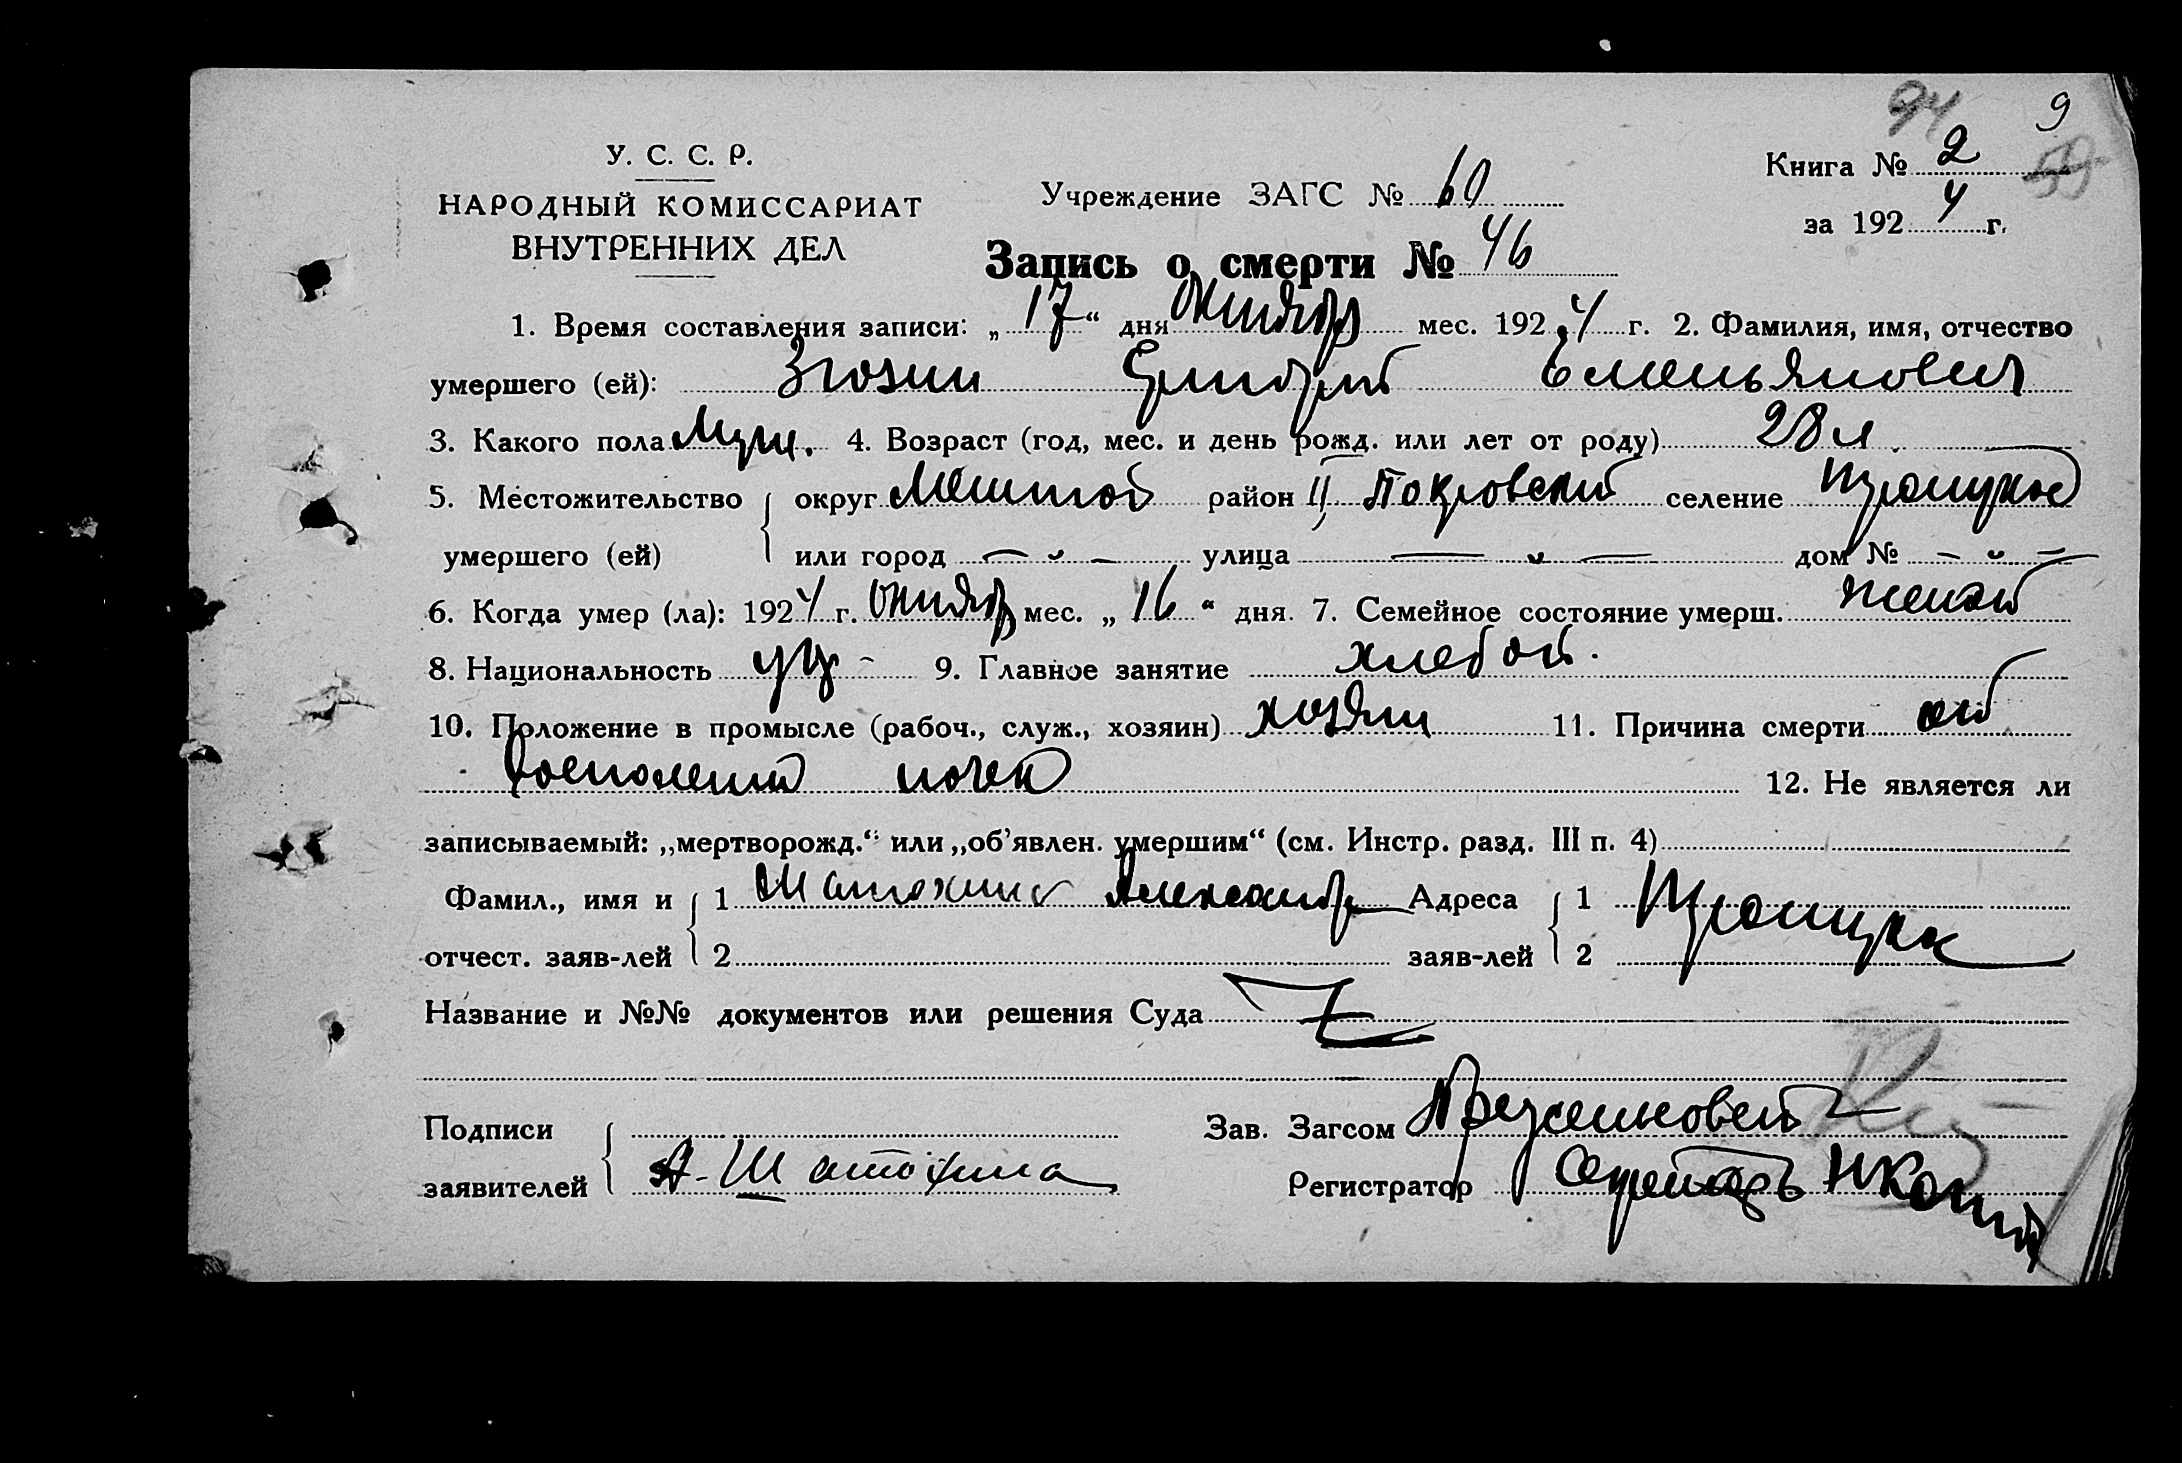 94 9
У. С. С. Р. Книга № 2 59
НАРОДНЫЙ КОМИССАРИАТ Учреждение ЗАГС № 60 за 1924 г.
ВНУТРЕННИХ ДЕЛ Запись о смерти № 46
1. Время составления записи: „17“ дня октябр мес. 1924 г. 2. Фамилия, имя, отчество
умершего (ей): Емельянович
3. Какого пола Муж. 4. Возраст (год, мес. и день рожд. или лет от роду) 28 л
5. Местожительство округ район II Покровский селение
умершего (ей) или город — " — улица — " — дом № — " —
6. Когда умер (ла): 1924 г. октябр мес. „16“ дня. 7. Семейное состояние умерш. женат
8. Национальность 9. Главное занятие хлебоп.
10. Положение в промысле (рабоч., служ., хозяин) хозяин 11. Причина смерти от
воспаления почек 12. Не является ли
записываемый: „мертворожд.“ или „об’явлен. умершим“ (см. Инстр. разд. III п. 4)
Фамил., имя и 1 Шатохина Александр Адреса 1
отчест. заяв-лей 2 заяв-лей 2
Название и №№ документов или решения Суда
Подписи Зав. Загсом
заявителей А. Шатохина Регистратор Секретарь